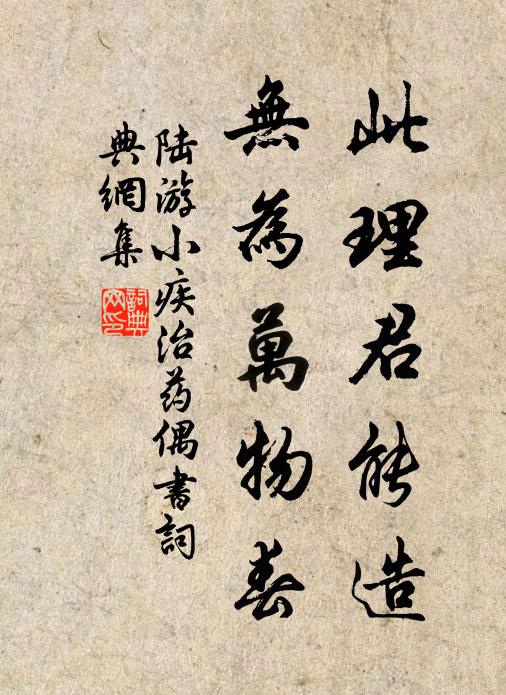 此理君能造
無為萬物春
陆游小疾治药偶書詞
典網集
詞典
网印